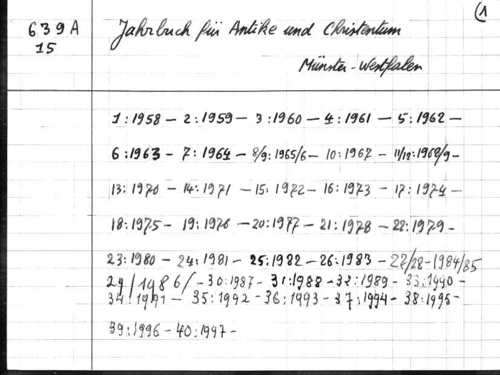 (1
639A
15
Jahrbuch für Antike und Christentum
Münster-Westfalen
1:1958 – 2:1959 – 3:1960 – 4:1961 – 5:1962 –
6:1963 – 7:1964 – 8/9:1965/6 – 10:1967 – 11/12:1968/9 –
13:1970 – 14:1971 – 15:1972 – 16:1973 – 17:1974 –
18:1975 – 19:1976 – 20:1977 – 21:1978 – 22:1979 –
23:1980 – 24:1981 – 25:1982 – 26:1983 – 27/28 – 1984/85
29/1986/ – 30:1987 – 31:1988 – 32:1989 – 33:1990 –
34:1991 – 35:1992 – 36:1993 – 37:1994 – 38:1995 –
39:1996 – 40:1997 –